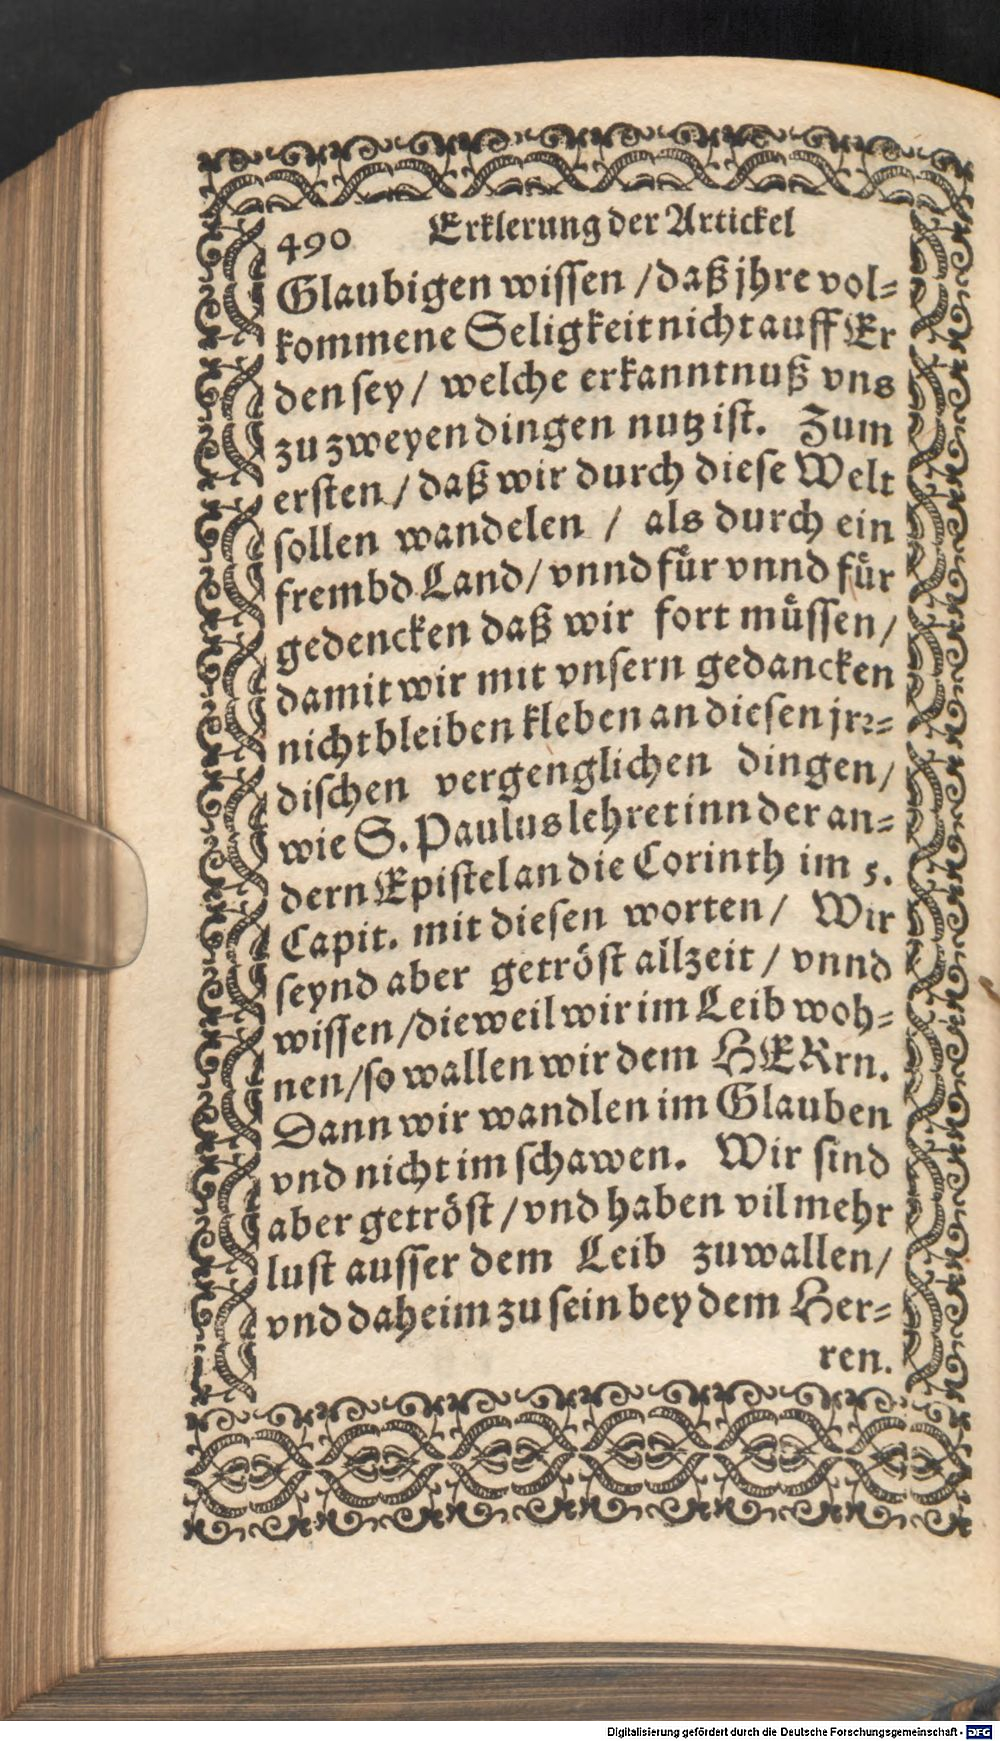 490 Erklerung der Artickel
Glaubigen wissen / daß jhre vol=
kommene Seligkeit nicht auff Er
den sey / welche erkanntnuß vns
zu zweyen dingen nutz ist. Zum
ersten / daß wir durch diese Welt
sollen wandelen / als durch ein
frembd Land / vnnd für vnnd für
gedencken daß wir fort müssen /
damit wir mit vnsern gedancken
nicht bleiben kleben an diesen jrr=
dischen vergenglichen dingen /
wie S. Paulus lehret inn der an=
dern Epistel an die Corinth im 5.
Capit. mit diesen worten / Wir
seynd aber getröst allzeit / vnnd
wissen / dieweil wir im Leib woh=
nen / so wallen wir dem HERrn.
Dann wir wandlen im Glauben
vnd nicht im schawen. Wir sind
aber getröst / vnd haben vil mehr
lust ausser dem Leib zuwallen /
vnd daheim zu sein bey dem Her=
ren.
Digitalisierung gefördert durch die Deutsche Forschungsgemeinschaft - DFG